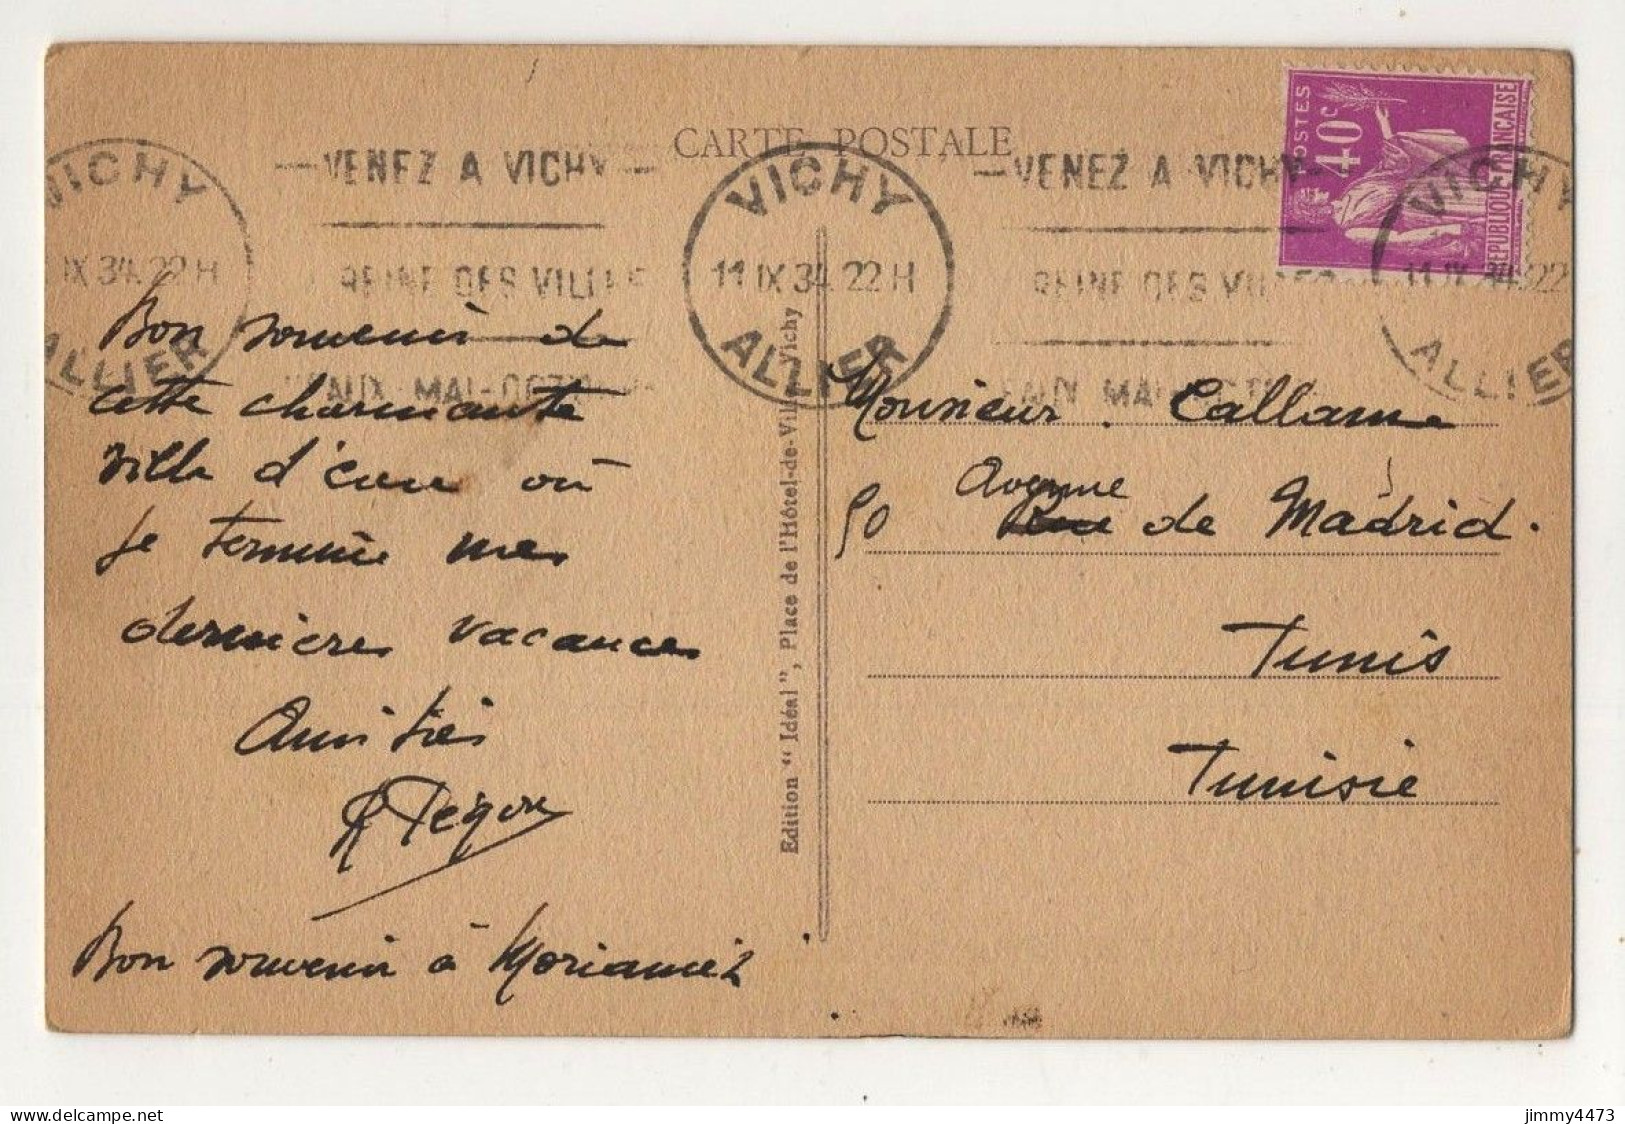 CARTE POSTALE
VICHY
IX 34 22 H
ALLIER
— VENEZ A VICHY —
REINE DES VILLES
D'EAUX MAI-OCT
VICHY
11 IX 34 22 H
ALLIER
— VENEZ A VICHY
REINE DES VILLES
D'EAUX MAI-OCT
VICHY
11 IX 34 22
ALLIER
POSTES
40c
REPUBLIQUE FRANÇAISE
Bon souvenir de
cette charmante
ville d'eau où
je termine mes
dernières vacances
Amitiés
Bon souvenir à
Edition " Idéal ", Place de l'Hôtel-de-Ville, Vichy
Monsieur Callame
Avenue
50 Rue de Madrid.
Tunis
Tunisie
jimmy4473
delcampe.net